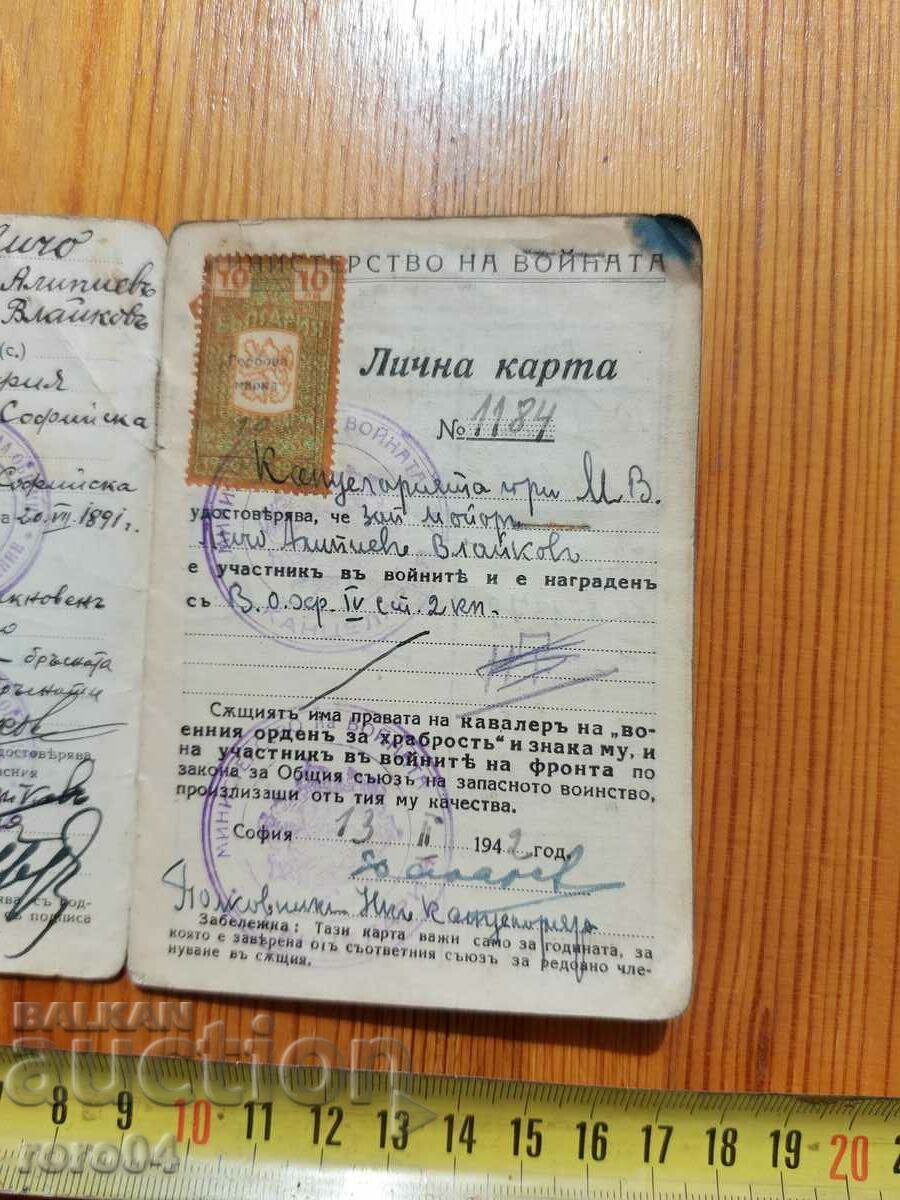 Личо
Алипиевъ
Влайковъ
(с.)
рия
Софийска
Софийска
на 20.VII.1891 г.
бръсната
достовѣрява
МИНИСТЕРСТВО НА ВОЙНАТА
10 10
БЪЛГАРИЯ
Гербова
марка
Лична карта
№ 1184
Канцеларията при М.В.
удостовѣрява, че зап. майоръ
Личо Алипиевъ Влайковъ
е участникъ въ войнитѣ и е награденъ
съ В. о. хр. IV ст. 2 кл.
Сѫщиятъ има правата на кавалеръ на „во-
енния орденъ за храбрость“ и знака му, и
на участникъ въ войнитѣ на фронта по
закона за Общия съюзъ на запасното воинство,
произлизащи отъ тия му качества.
София 13 II 1942 год.
Полковникъ Н-къ Канцеларията
Забележка: Тази карта важи само за годината, за
която е заверена отъ съответния съюзъ за редовно чле-
нуване въ сѫщия.
BALKAN
auction
roro04
7 8 9 10 11 12 13 14 15 16 17 18 19 20